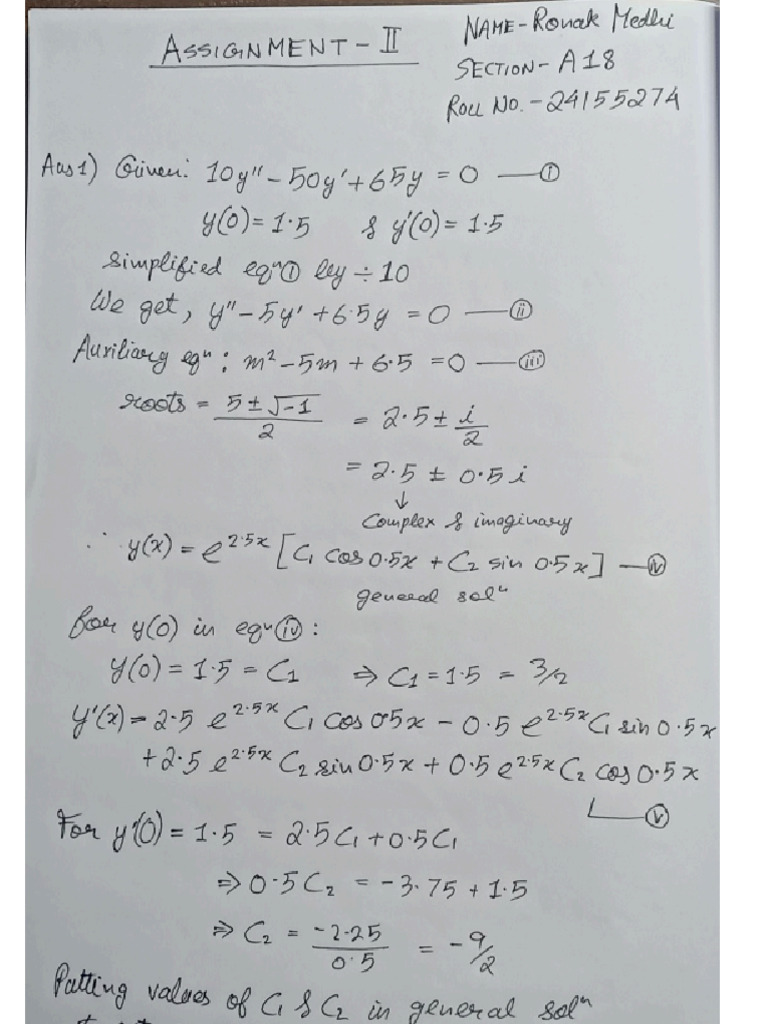 ASSIGNMENT - II
NAME - Ronak Medhi
SECTION - A18
ROLL NO. - 24155274
Ans 1) Given: 10y" - 50y' + 65y = 0 — (i)
y(0) = 1.5 & y'(0) = 1.5
Simplified eqⁿ (i) by ÷ 10
We get, y" - 5y' + 6.5y = 0 — (ii)
Auxiliary eqⁿ : m² - 5m + 6.5 = 0 — (iii)
roots = (5 ± √-1)/2 = 2.5 ± i/2
= 2.5 ± 0.5i
↓
Complex & imaginary
∴ y(x) = e^2.5x [C₁ cos 0.5x + C₂ sin 0.5x] — (iv)
general solⁿ
for y(0) in eqⁿ (iv) :
y(0) = 1.5 = C₁ ⇒ C₁ = 1.5 = 3/2
y'(x) = 2.5 e^2.5x C₁ cos 05x - 0.5 e^2.5x C₁ sin 0.5x
+ 2.5 e^2.5x C₂ sin 0.5x + 0.5 e^2.5x C₂ cos 0.5x
(v)
For y'(0) = 1.5 = 2.5C₁ + 0.5C₁
⇒ 0.5C₂ = -3.75 + 1.5
⇒ C₂ = -2.25/0.5 = -9/2
Putting values of C₁ & C₂ in general solⁿ